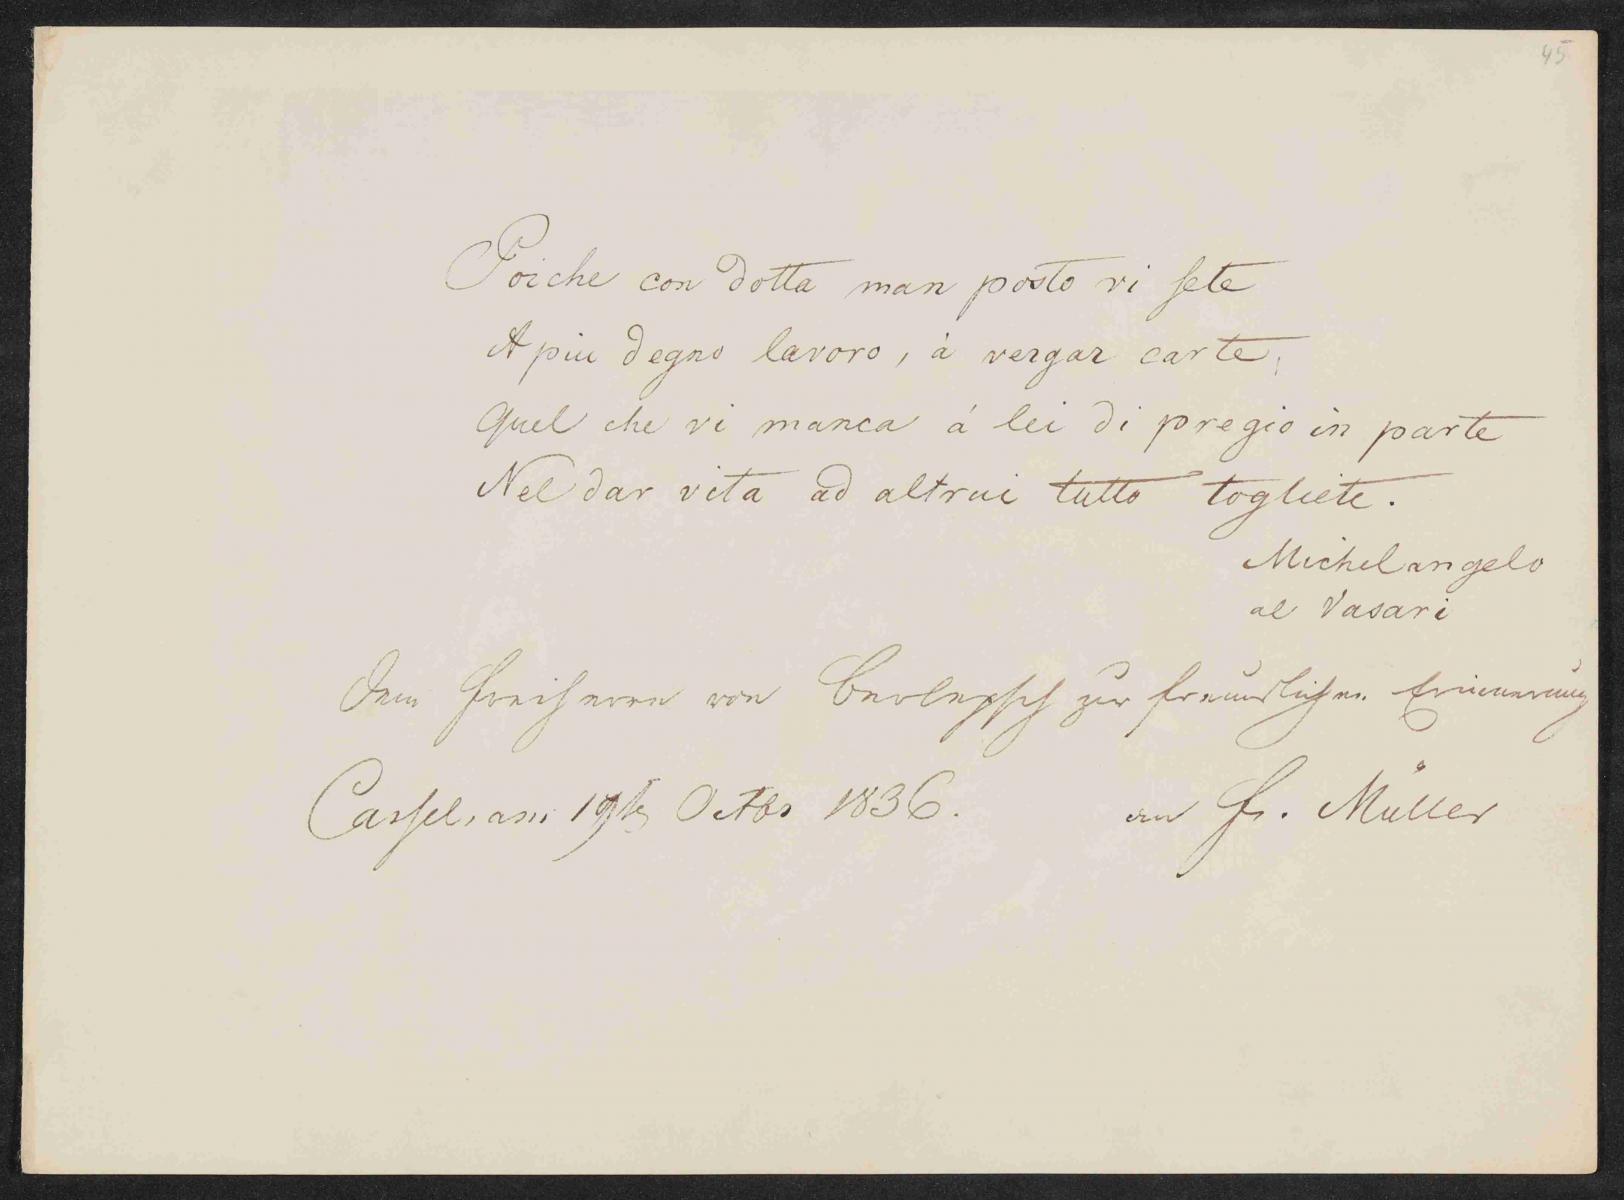 45
Poiche con dotta man posto vi sete
A piu degno lavoro, à vergar carte,
Quel che vi manca á lei di pregio in parte
Nel dar vita ad altrui tutto togliete.
Michelangelo
al Vasari
Dem Freiherrn von Berlepsch zur freundlichen Erinnerung
Cassel, am 19t Octbr 1836. an Fr. Müller